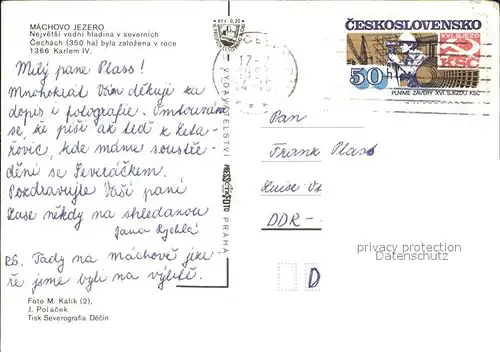 MÁCHOVO JEZERO
Největší vodní hladina v severních
Čechách (350 ha) byla založena v roce
1366 Karlem IV.
Milý pane Plass!
Mnohokrát Vám děkuji za
dopis i fotografie. Omlouvám
se, že píši až teď z
kde máme soustře-
dění se Severáčkem.
Pozdravujte Vaší paní
Zase někdy na shledanou
Jana Rychlá
PS. Tady na máchově jeze-
ře jsme byli na výletě.
Foto M. Kalík (2),
J. Poláček
Tisk Severografia Děčín
Kčs 0,20
17.-7
VYDAVATELSTVÍ
PRESSFOTO
PRAHA
ČESKOSLOVENSKO
XVI. SJEZD
KSČ
50
PLNÍME ZÁVĚRY XVI. SJEZDU KSČ
Pan
Frank Plass
DDR-
D
copyright protected
Datenschutz